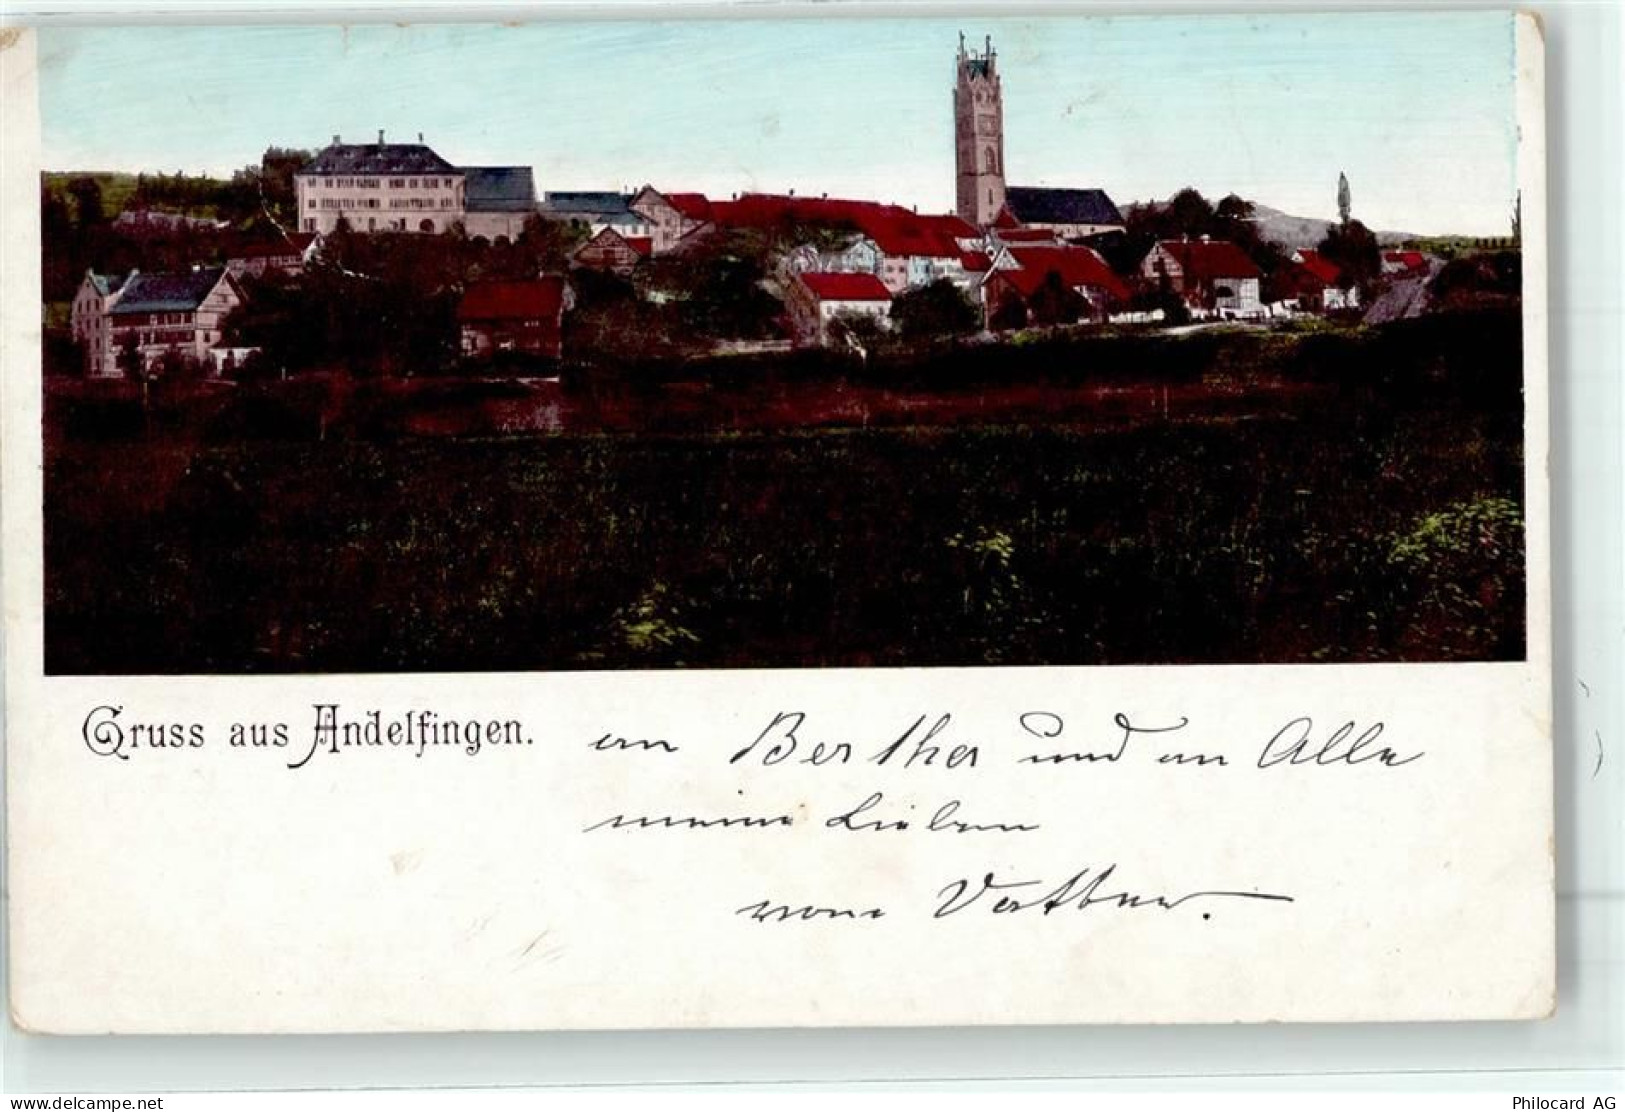 Gruss aus Andelfingen. an Bertha und an Alle
meine Lieben
vom
delcampe.net
Philocard AG